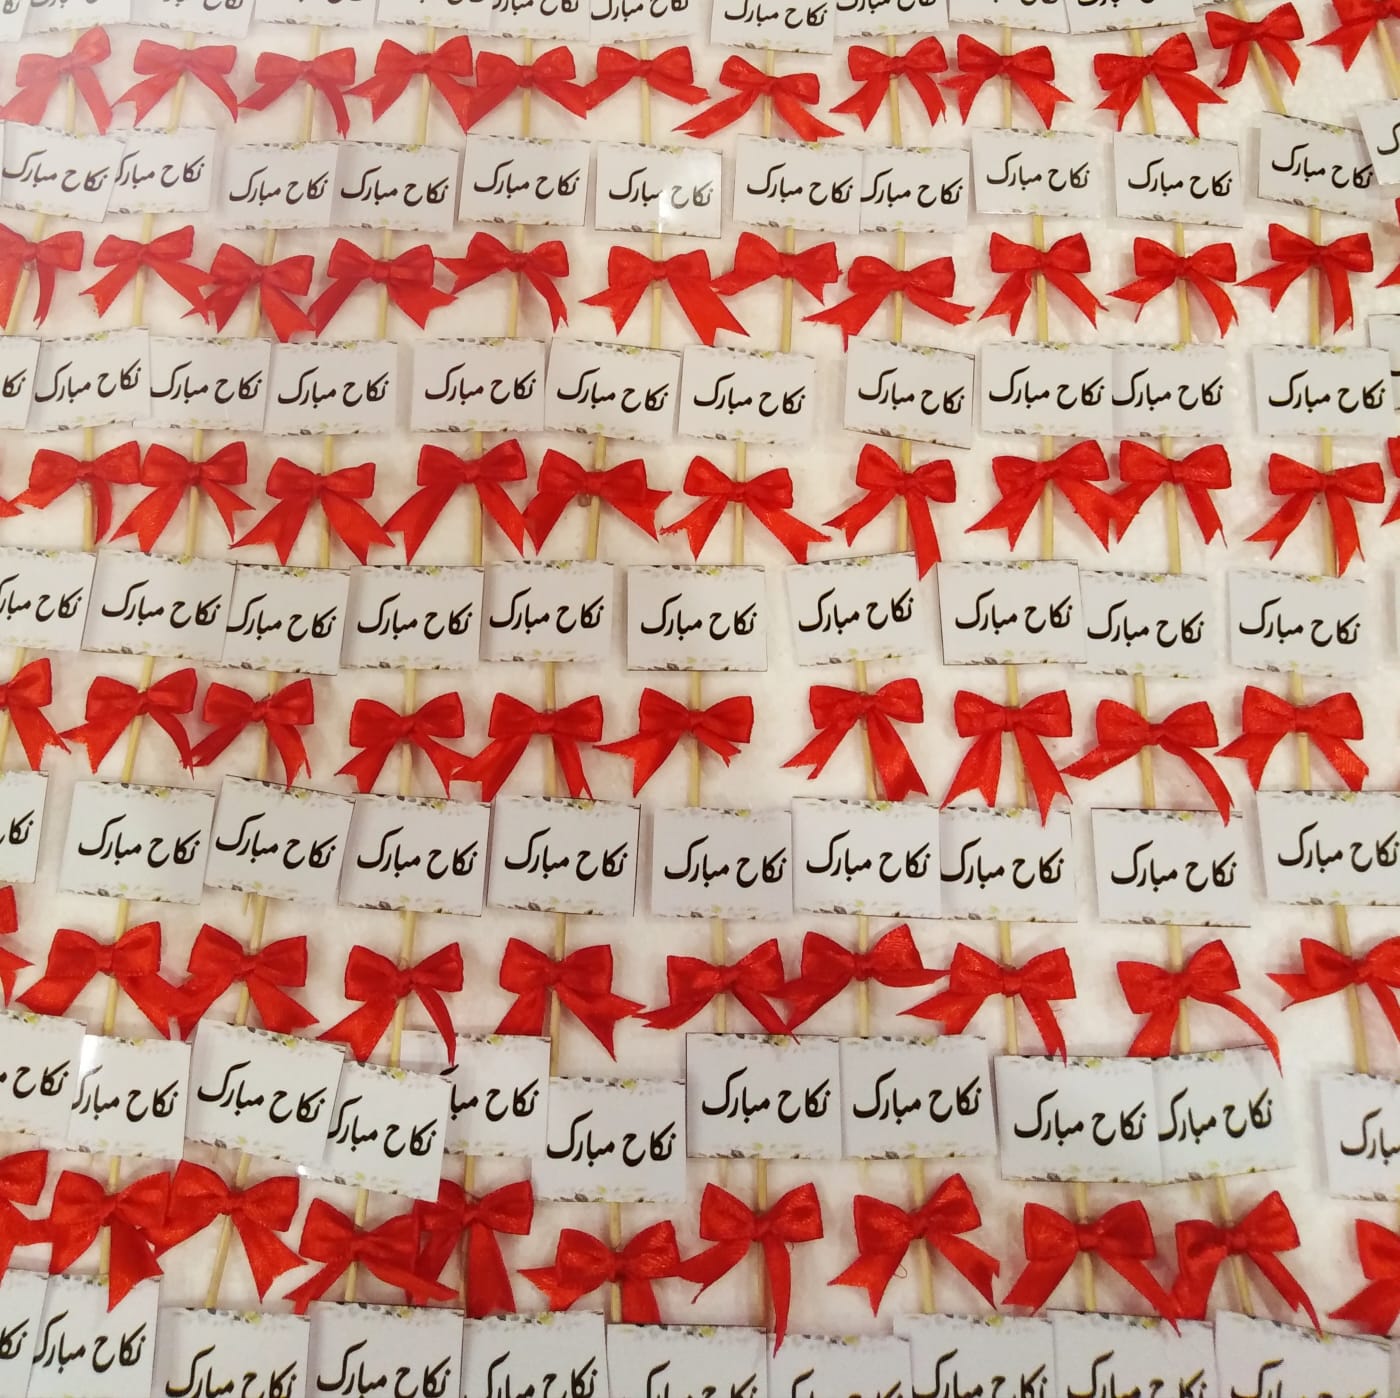 نکاح مبارک
نکاح مبارک نکاح مبارک نکاح مبارک نکاح مبارک نکاح مبارک نکاح مبارک نکاح مبارک نکاح مبارک نکاح مبارک نکاح مبارک نکاح مبارک
نکاح مبارک نکاح مبارک نکاح مبارک نکاح مبارک نکاح مبارک نکاح مبارک نکاح مبارک نکاح مبارک نکاح مبارک نکاح مبارک
نکاح مبارک نکاح مبارک نکاح مبارک نکاح مبارک نکاح مبارک نکاح مبارک نکاح مبارک نکاح مبارک نکاح مبارک نکاح مبارک
نکاح مبارک نکاح مبارک نکاح مبارک نکاح مبارک نکاح مبارک نکاح مبارک نکاح مبارک نکاح مبارک نکاح مبارک
نکاح مبارک نکاح مبارک نکاح مبارک نکاح مبارک نکاح مبارک نکاح مبارک نکاح مبارک نکاح مبارک
نکاح مبارک نکاح مبارک نکاح مبارک